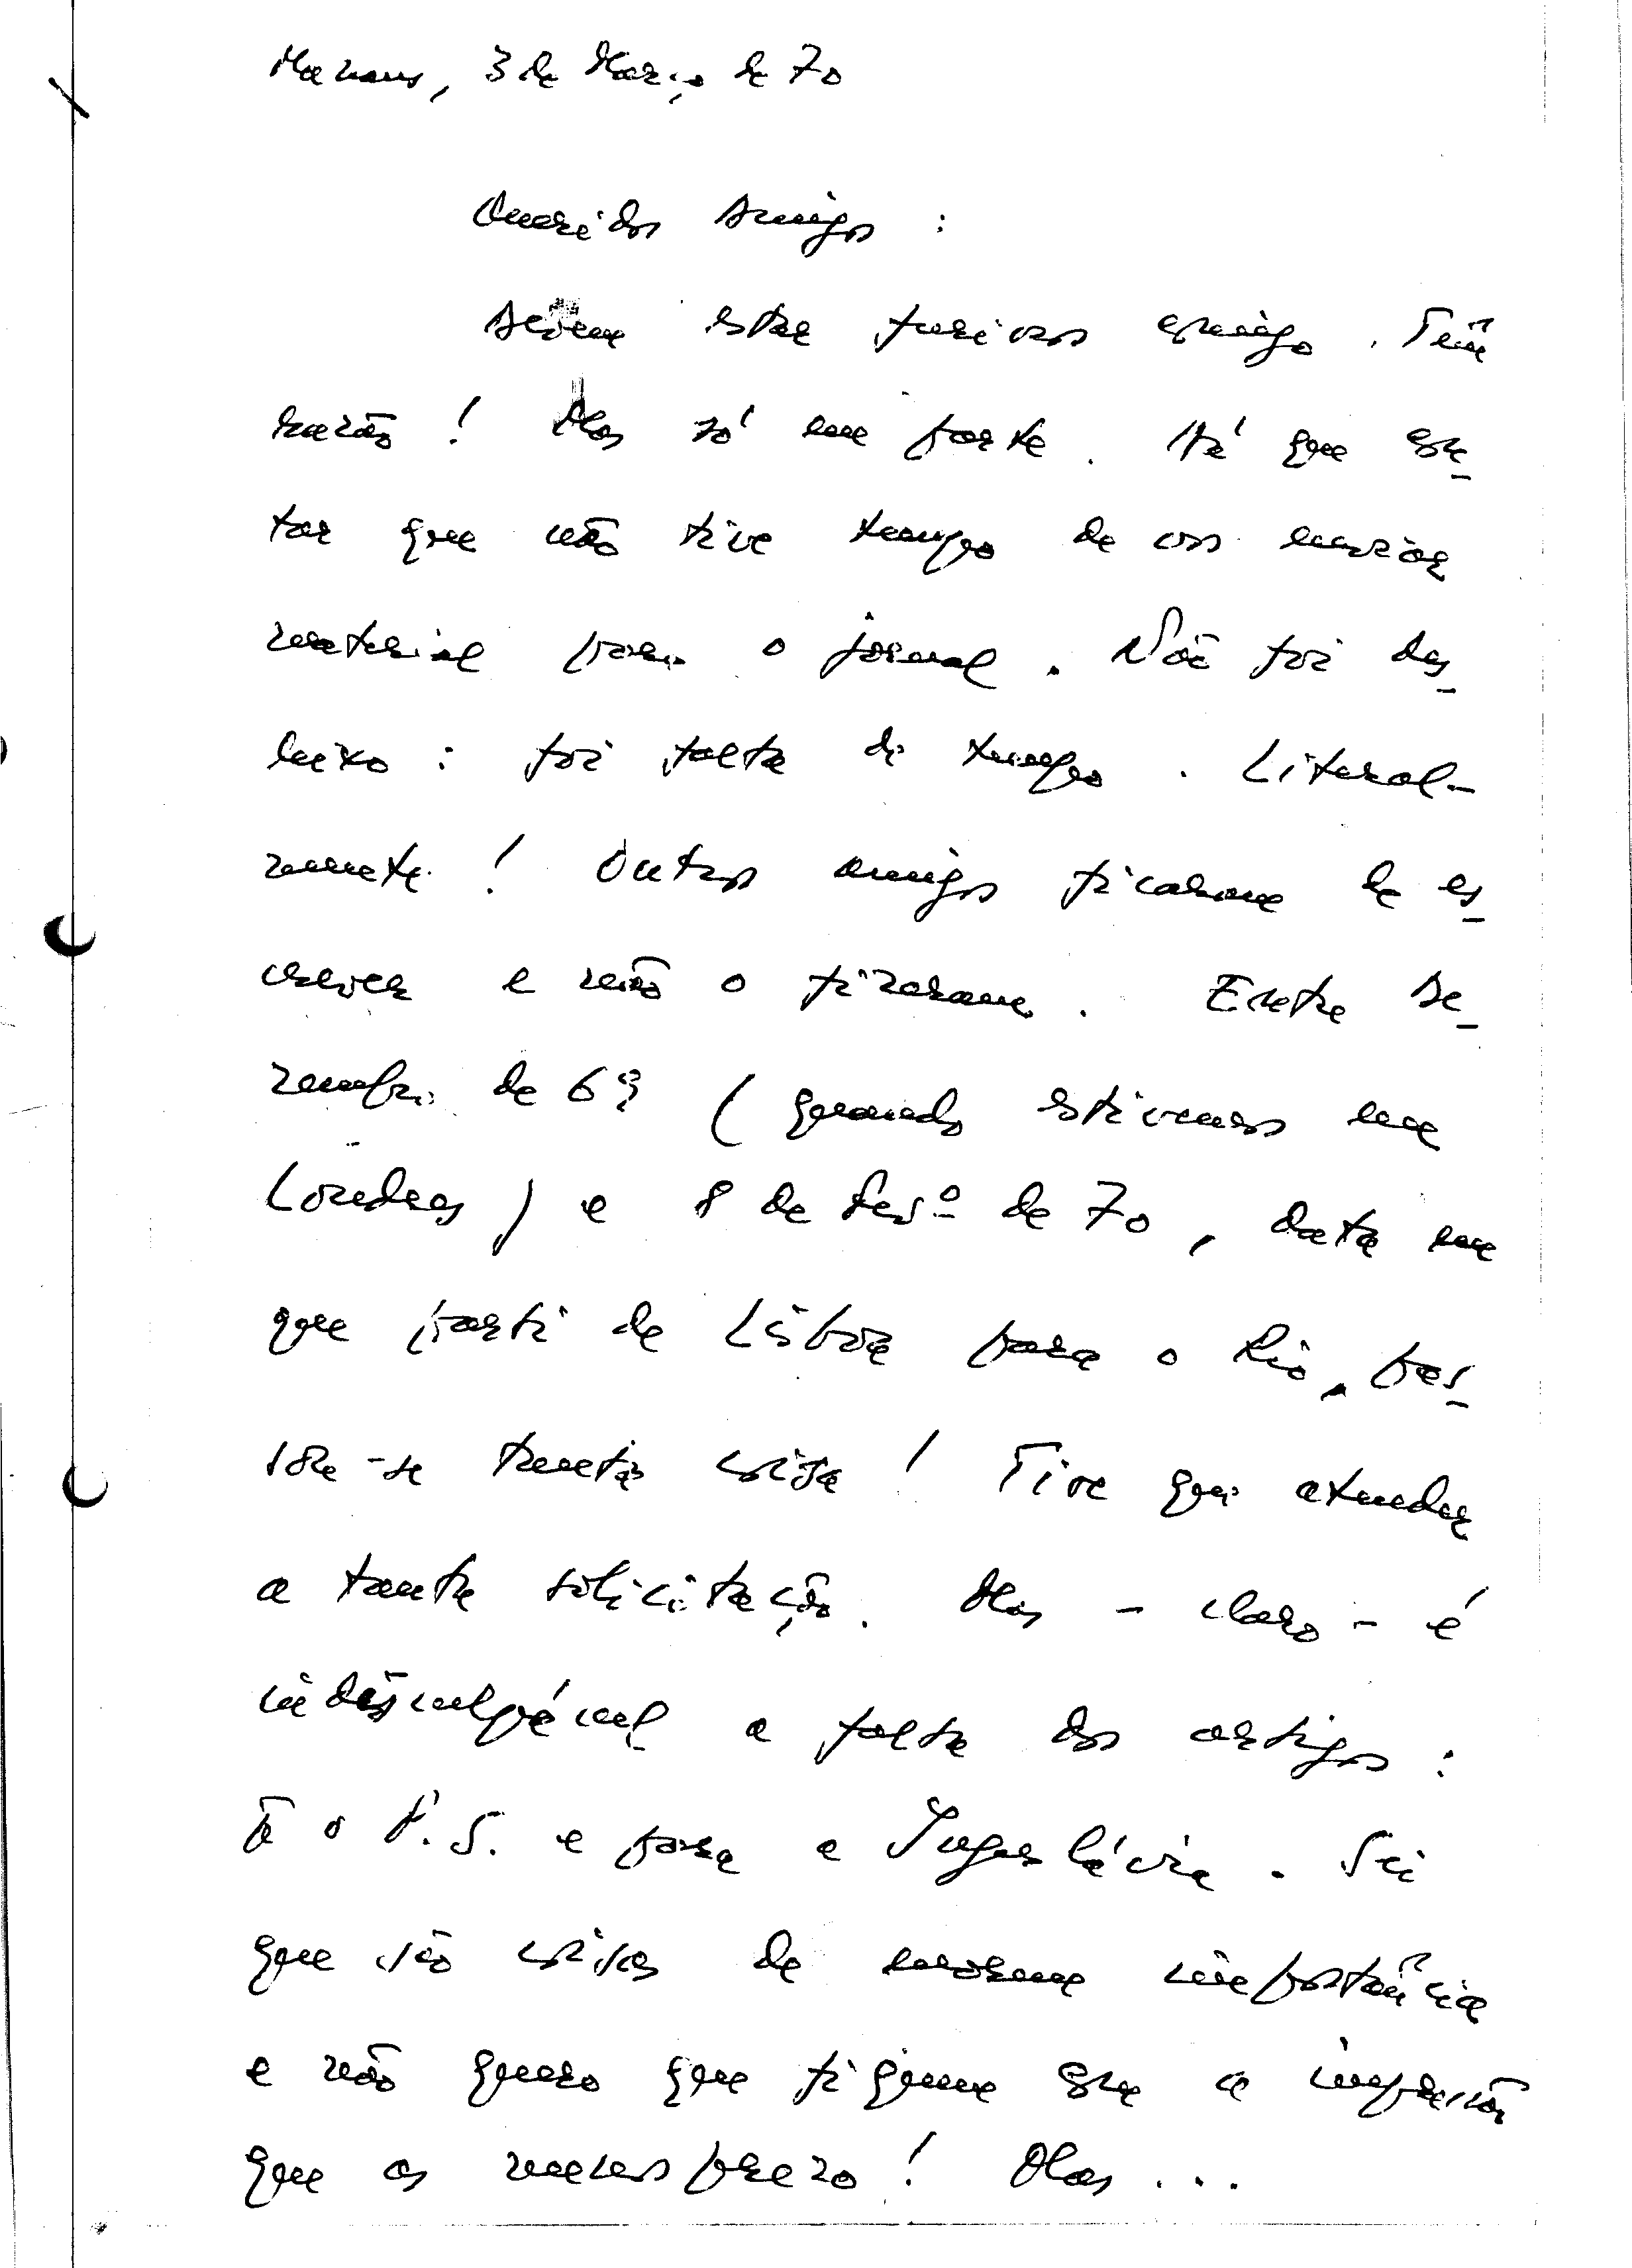 Manaus, 3 de Março de 70
Queridos Amigos:
Devem estar furiosos comigo. Têm
razão! Mas só em parte. Há que con-
tar que não tive tempo de vos enviar
material para o jornal. Não foi des-
leixo: foi falta de tempo. Literal-
mente! Outros amigos ficaram de es-
crever e não o fizeram. Entre De-
zembro de 69 (quando estivemos em
Londres) e 8 de Fevº de 70, data em
que parti de Lisboa para o Rio, pas-
sou-se tanta coisa! Tive que atender
a tanta solicitação. Mas - claro - é
indisculpável a falta dos artigos:
P. S. e para a Jugoslávia. Sei
que são coisas de enorme importância
e não quero que fiquem com a impressão
que as menosprezo! Mas...